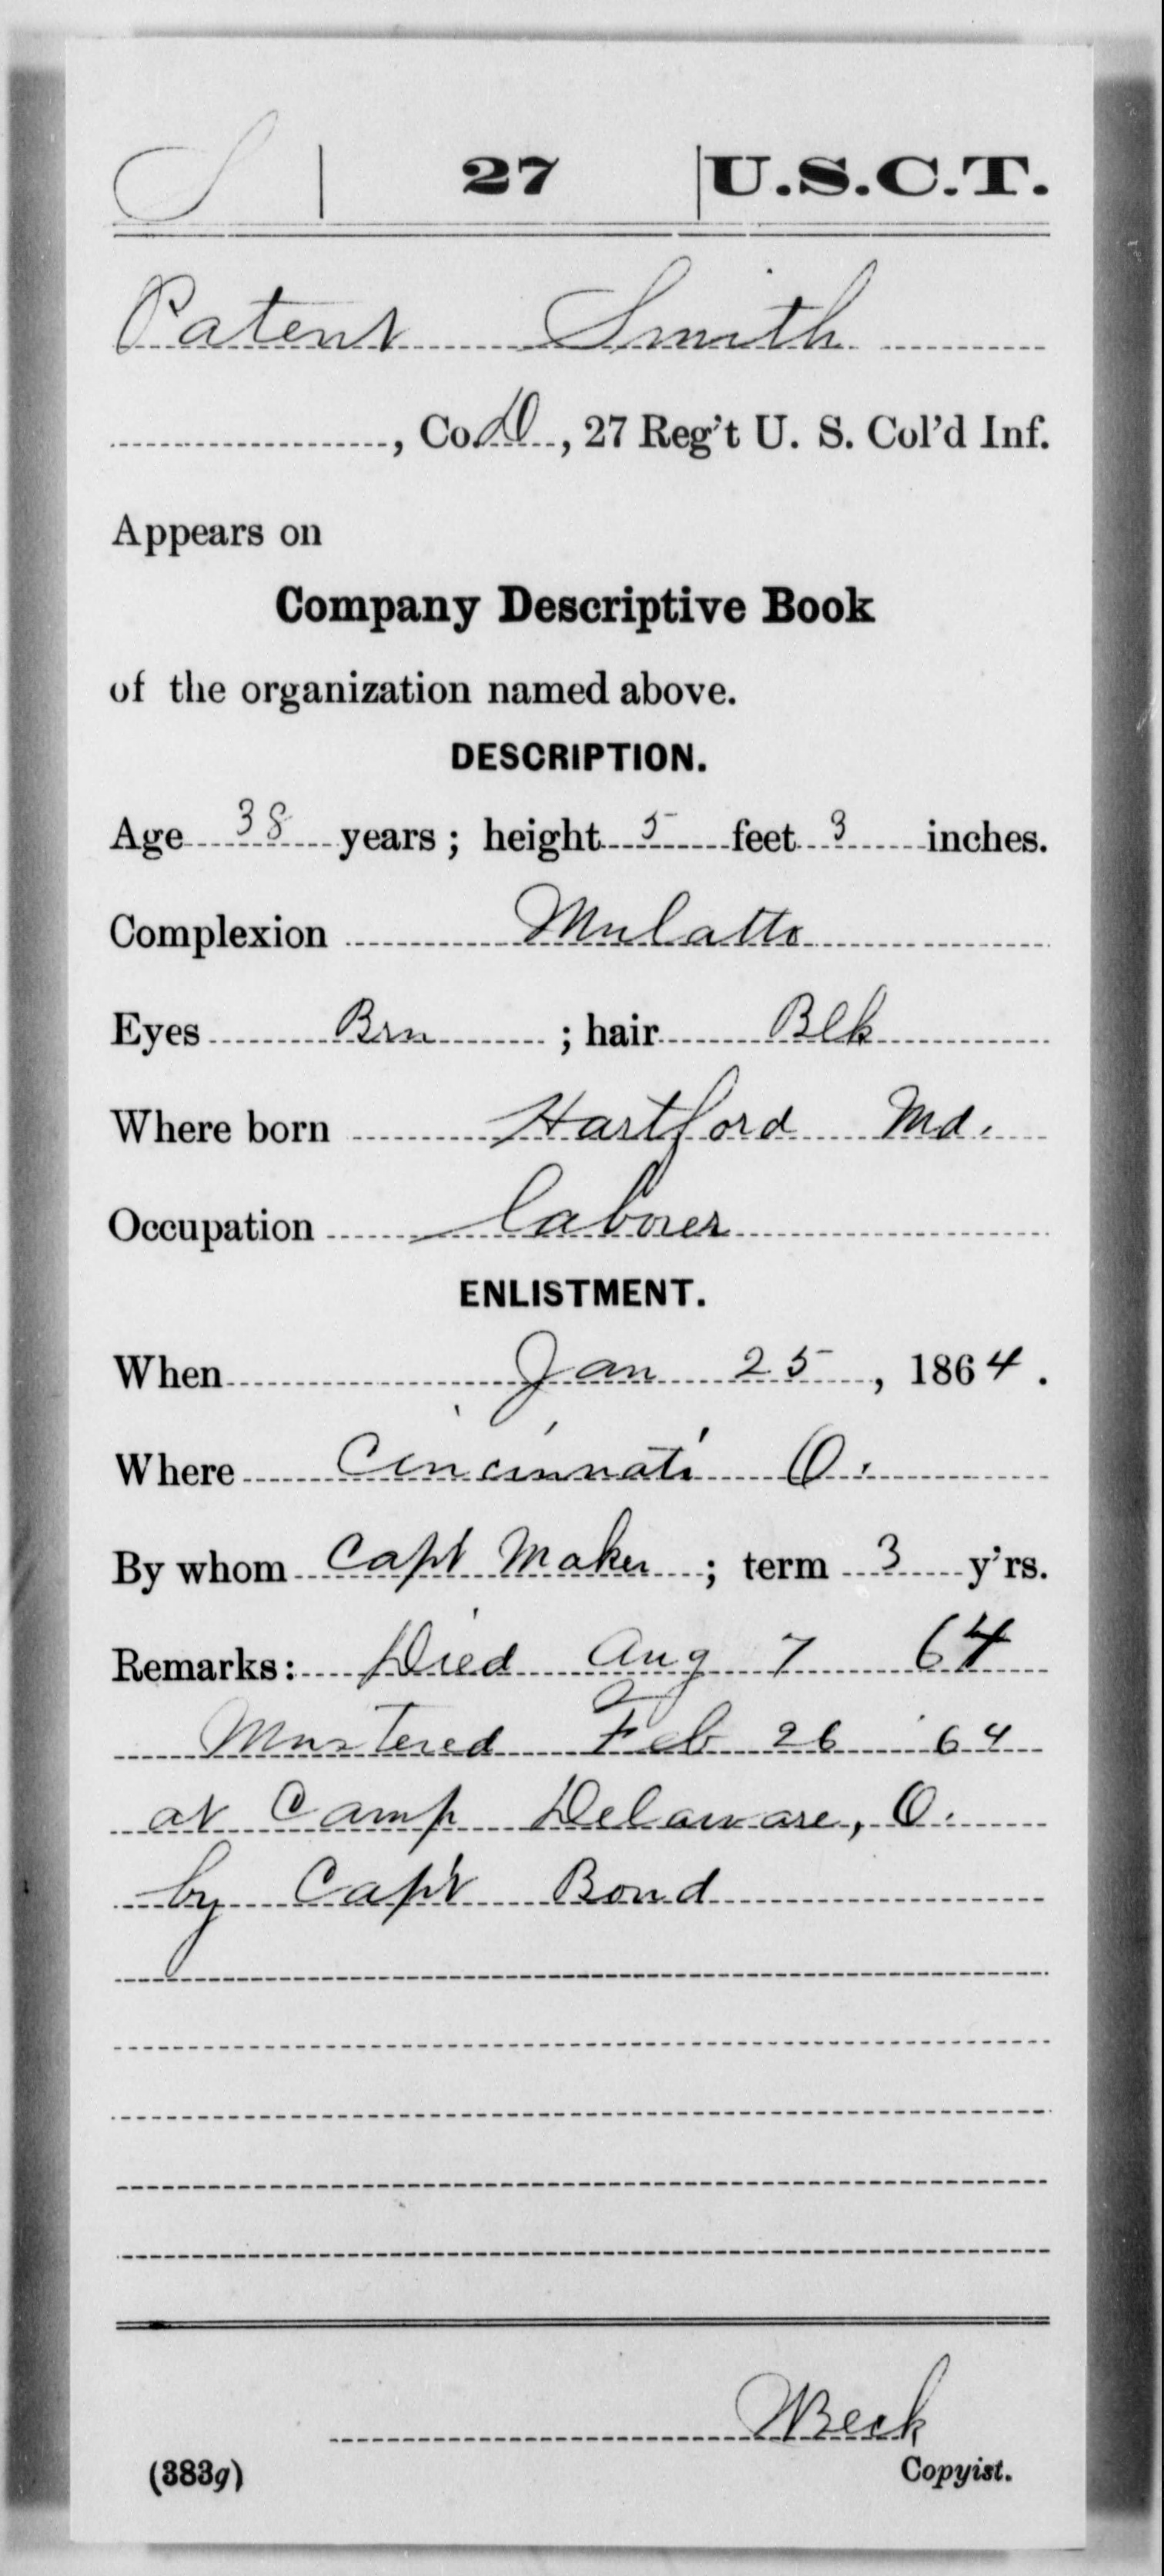 S | 27 | U.S.C.T.
Patent Smith
, Co. D, 27 Reg't U. S. Col'd Inf.
Appears on
Company Descriptive Book
of the organization named above.
DESCRIPTION.
Age 38 years; height 5 feet 3 inches.
Complexion Mulatto
Eyes Brn; hair Blk
Where born Hartford Md.
Occupation laborer
ENLISTMENT.
When Jan 25, 1864.
Where Cincinnati O.
By whom Capt Maker; term 3 y'rs.
Remarks: Died Aug 7 64
Mustered Feb 26 64
at Camp Delaware, O.
by Capt Bond
Beck
(383g) Copyist.